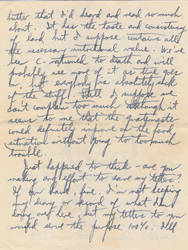 butter that I'd heard and read so much
about. It has the taste and consistency
of lard but I suppose contains all
the necessary nutritional value. We've
been C-rationed to death and will
probably see most of it as time goes
by, but anyhow I've absorbed much
of the stuff. Still I suppose we
don't complain too much although it
seems to me that the quartermaster
could definitely improve on the food
situation without going to too much
trouble.
Just happened to think - are you
making any effort to save my letters?
If so, fine. I'm not keeping
any diary or record of what I'm
doing over here, but my letters to you
would serve the purpose 100%. I'll